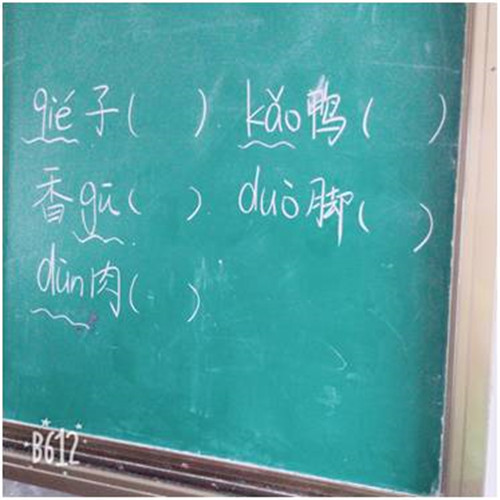 qié子( ) kǎo鸭( )
香gū( ) duò脚( )
dùn肉( )
B612